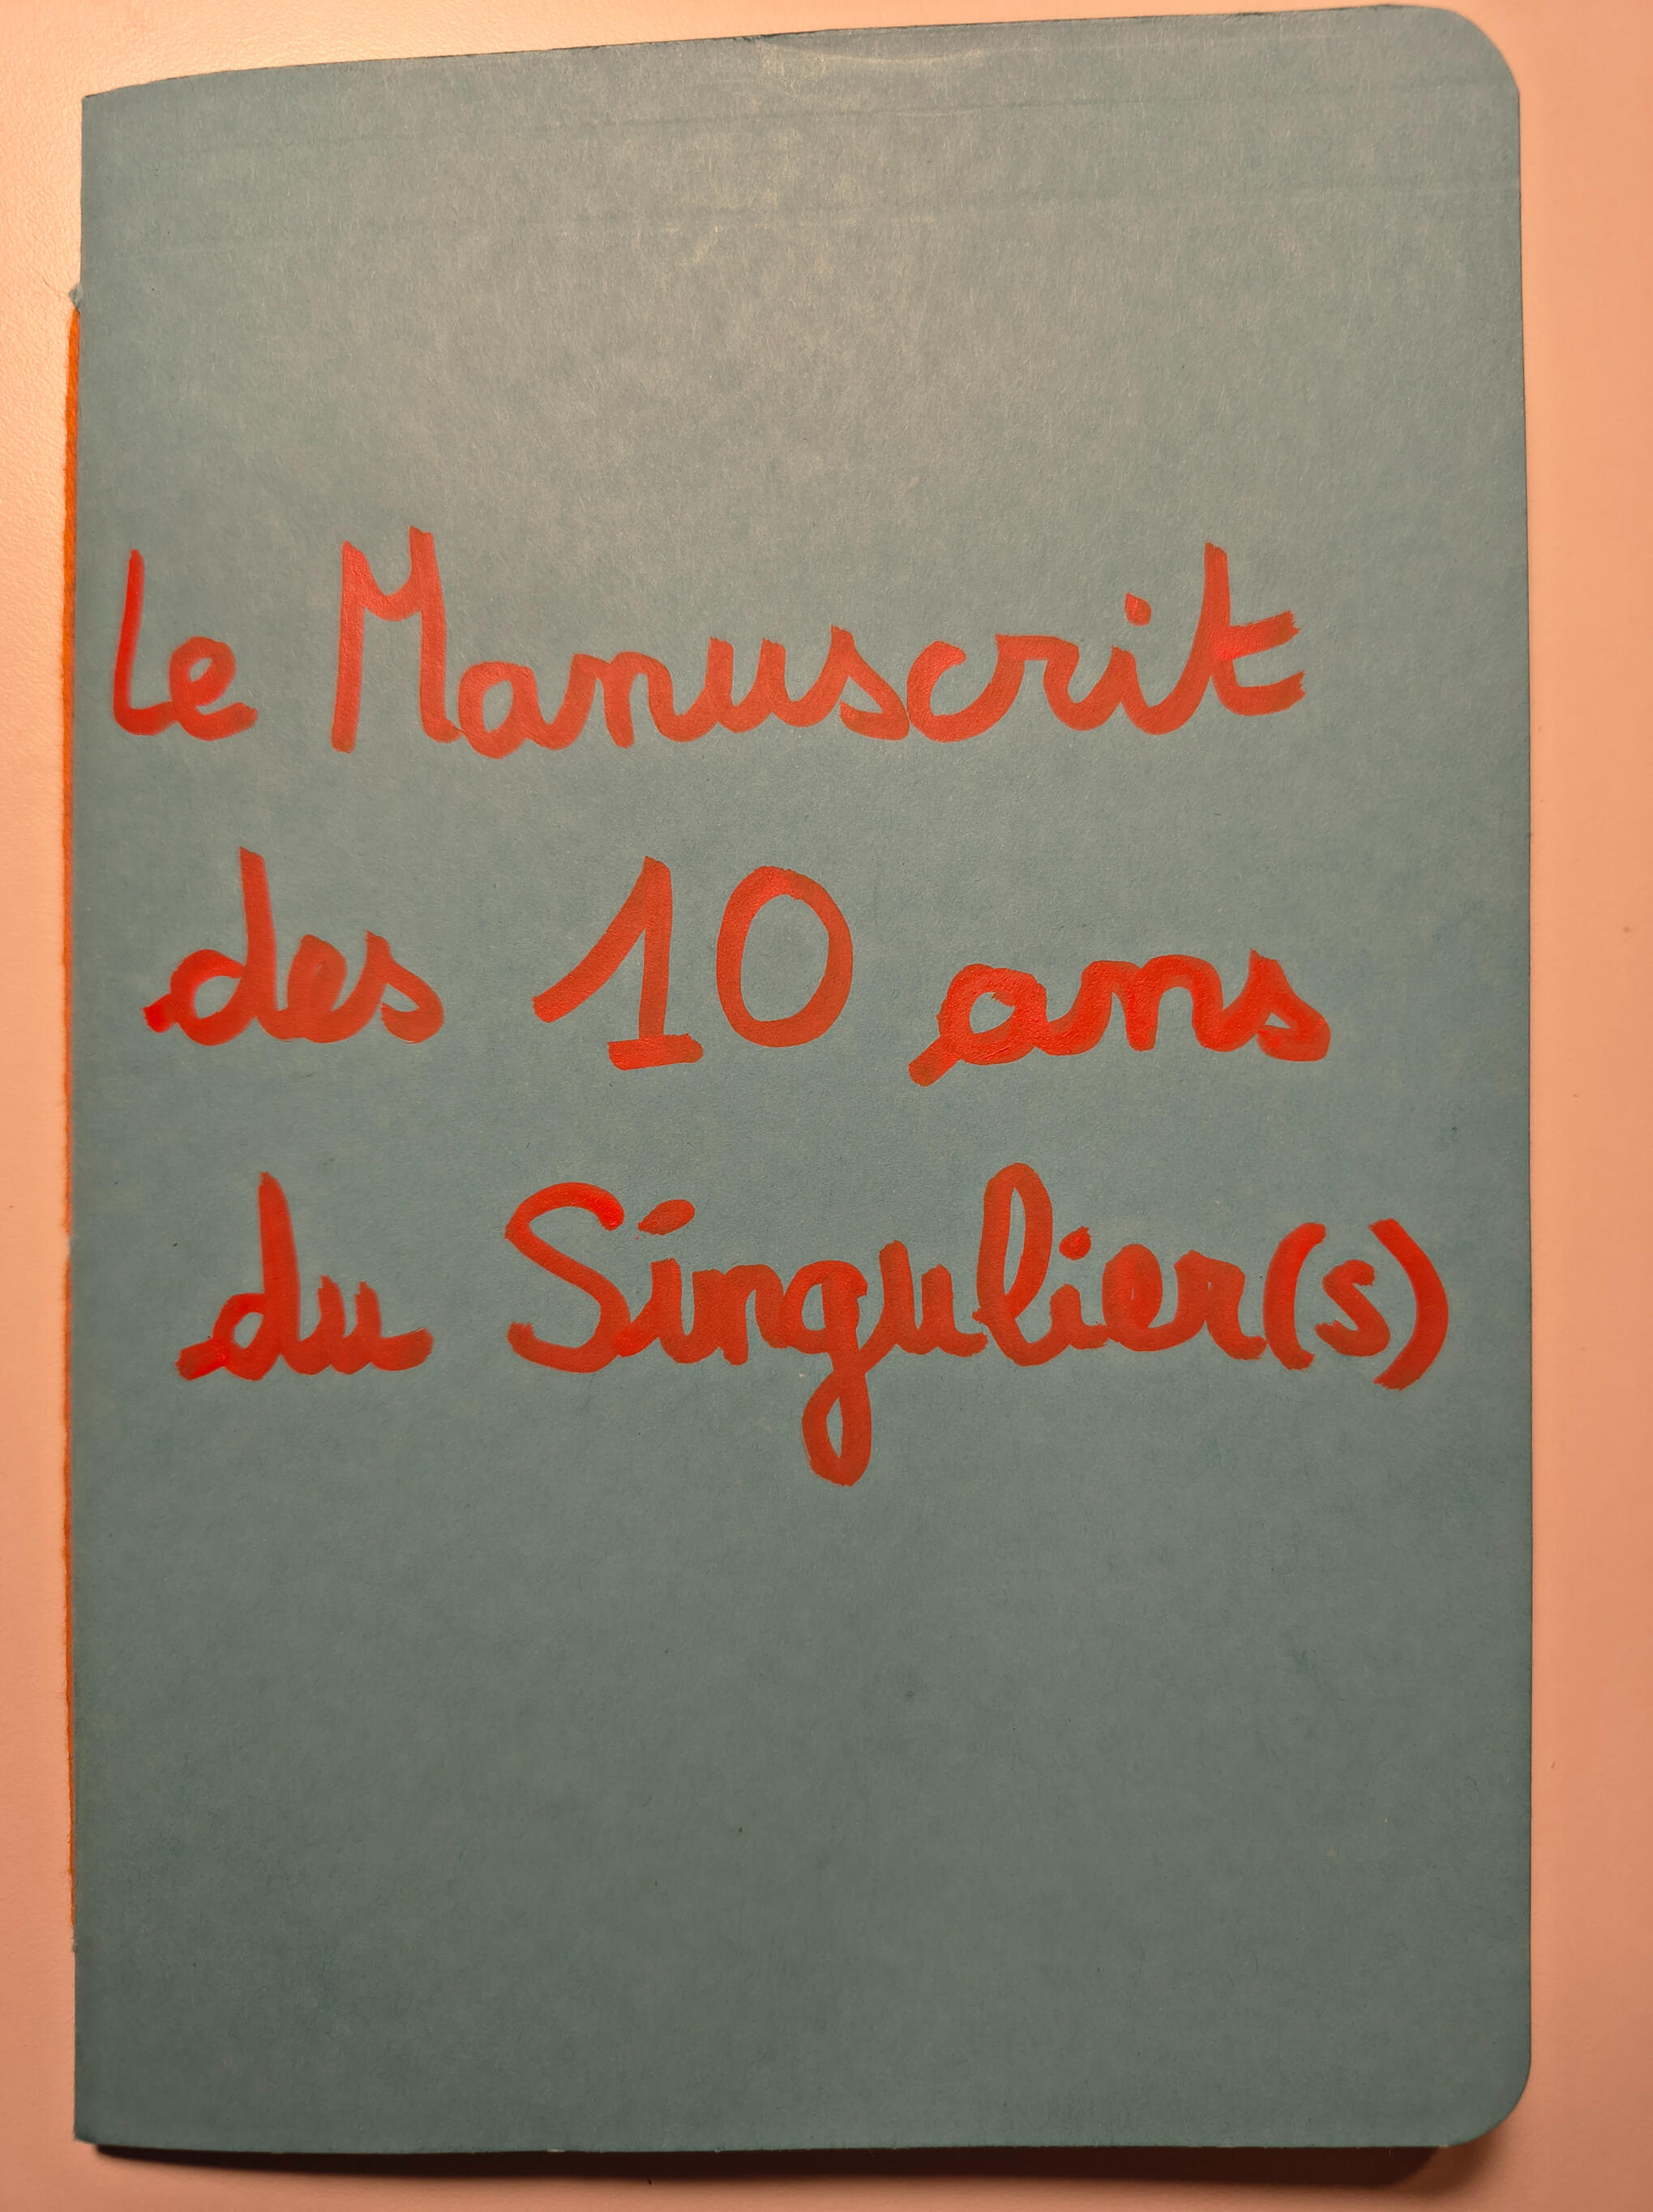 Le Manuscrit
des 10 ans
du Singulier(s)